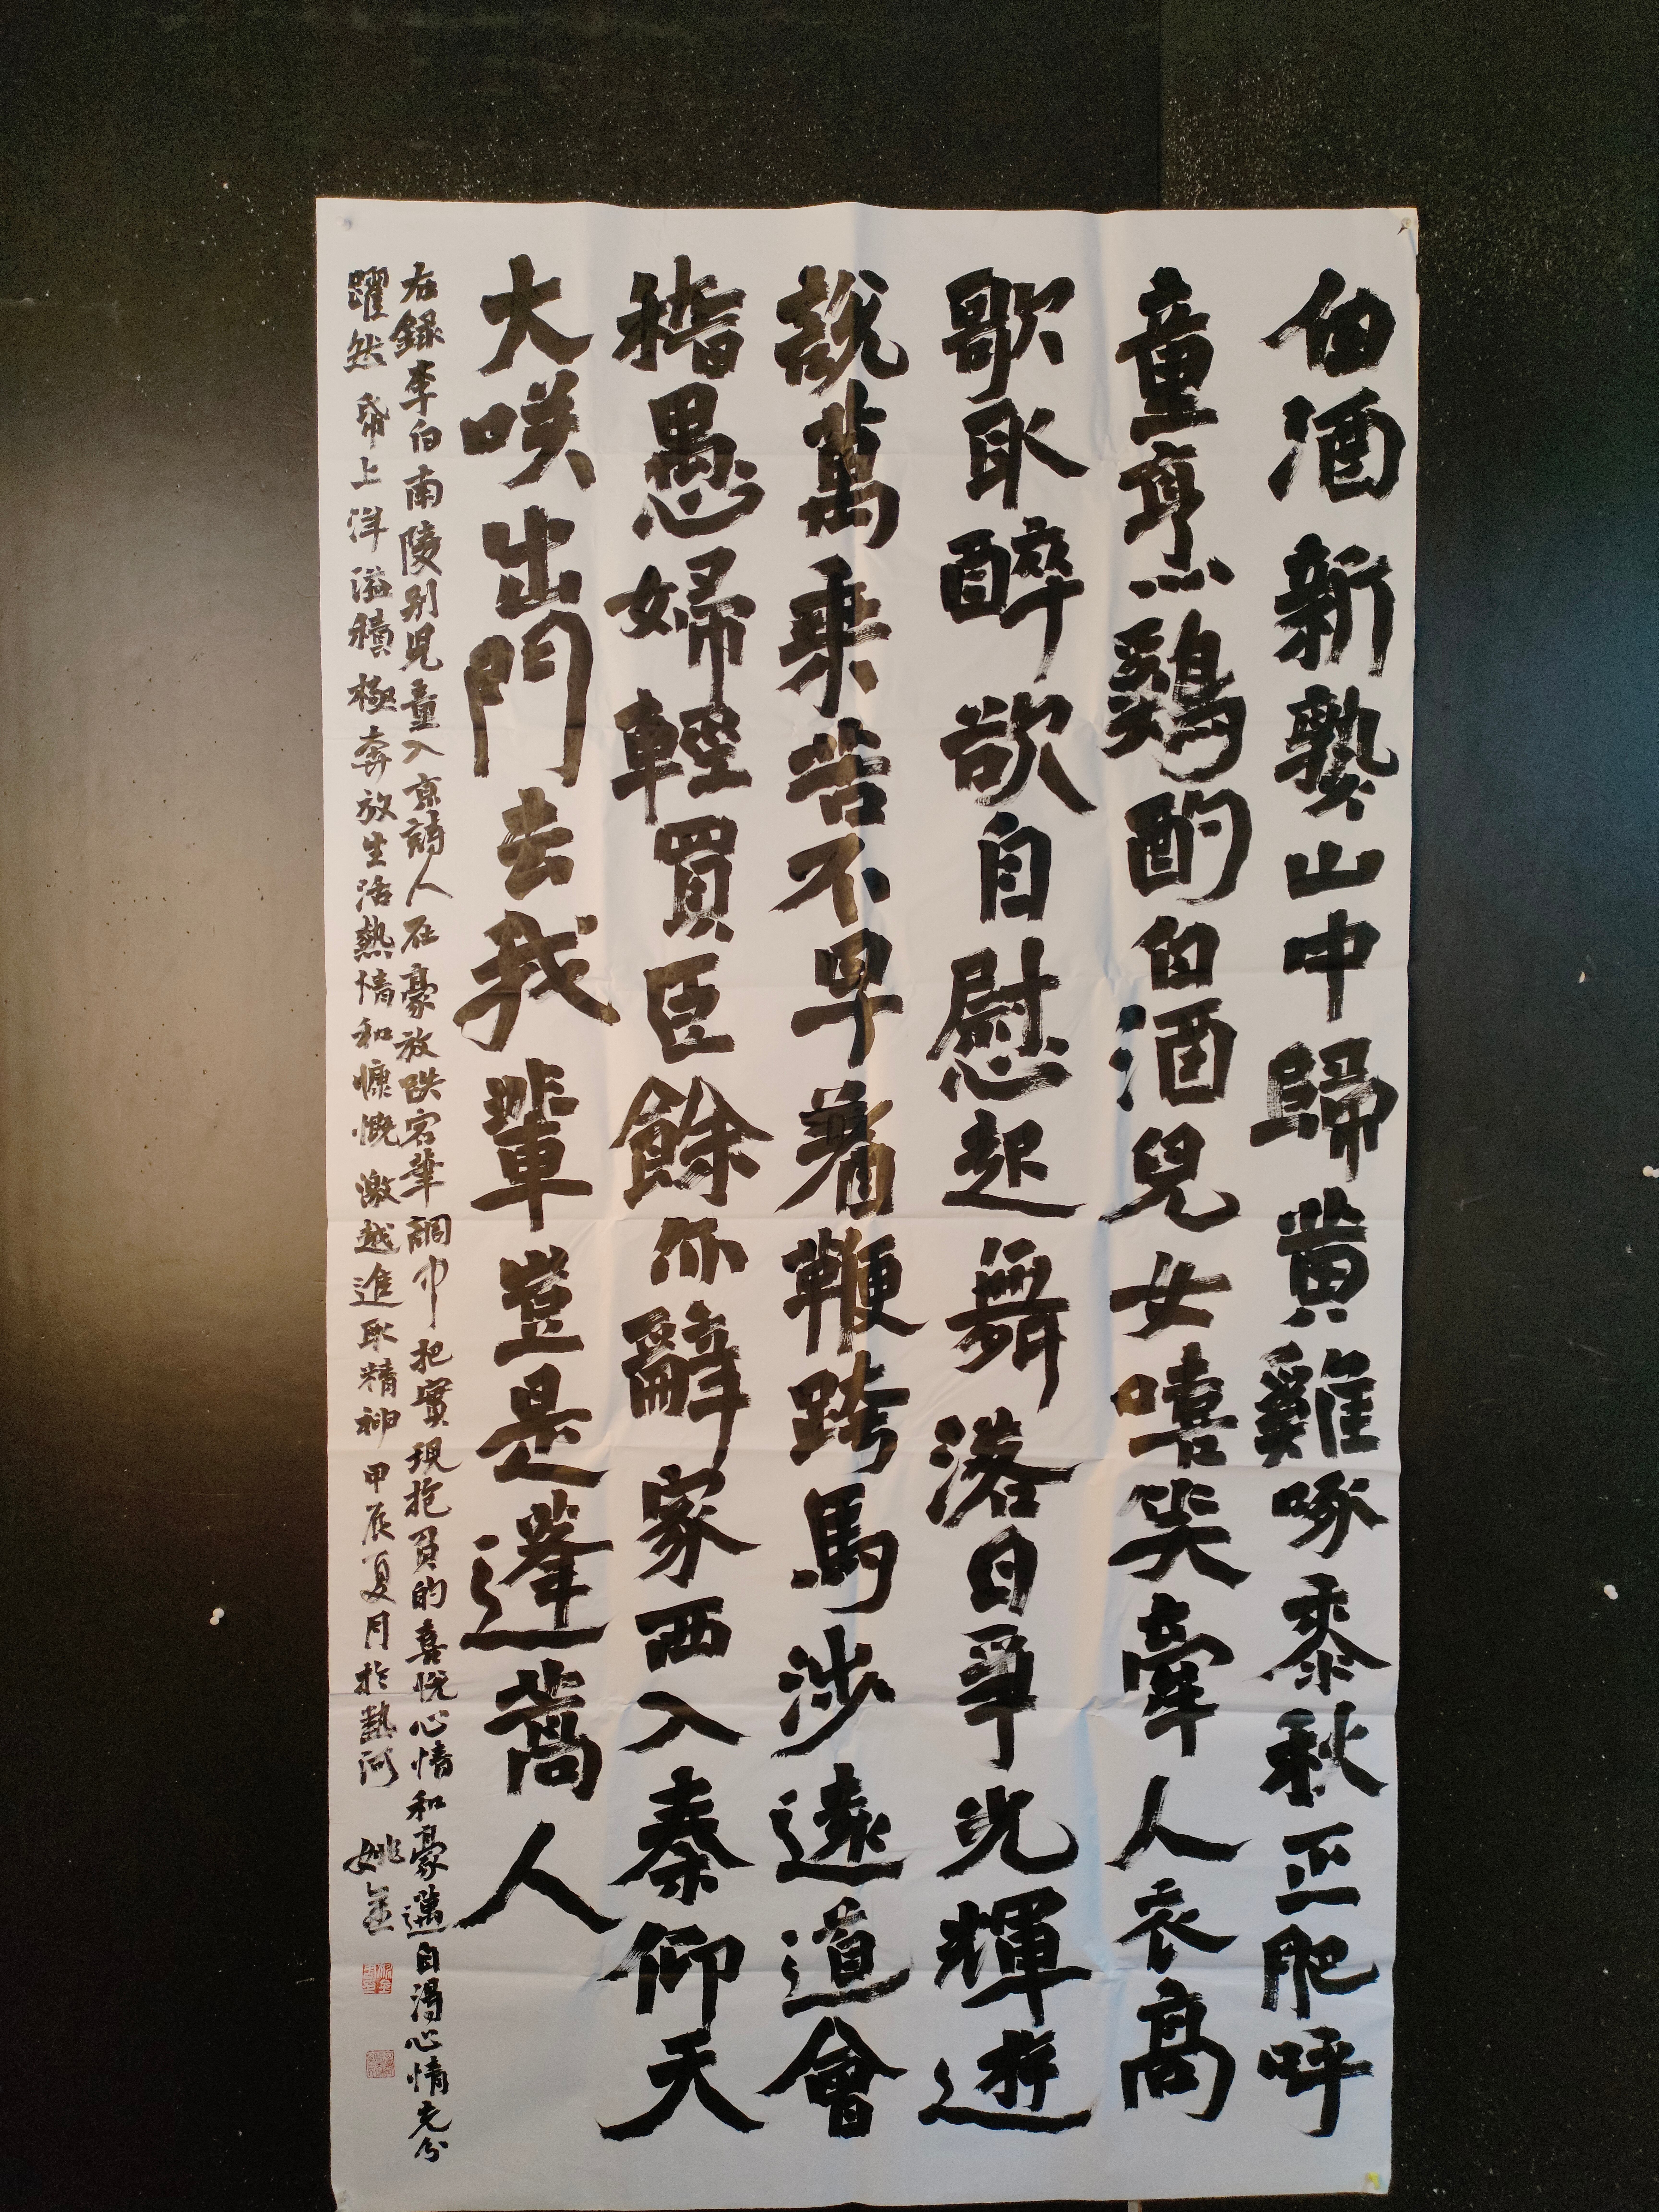 白酒新熟山中歸黄雞啄黍秋正肥呼
童烹鷄酌白酒兒女嘻笑牽人衣高
歌取醉欲自慰起舞落日争光輝遊
說萬乘苦不早着鞭跨馬涉遠道會
稽愚婦輕買臣餘亦辭家西入秦仰天
大咲出門去我輩豈是蓬蒿人
右録李白南陵别児童入京詩人在豪放跌宕筆調中把實現抱負的喜悦心情和豪邁自得心情充分
躍然帋上洋溢積極奔放生活熱情和慷慨激越進取精神甲辰夏月於熱河 姚金